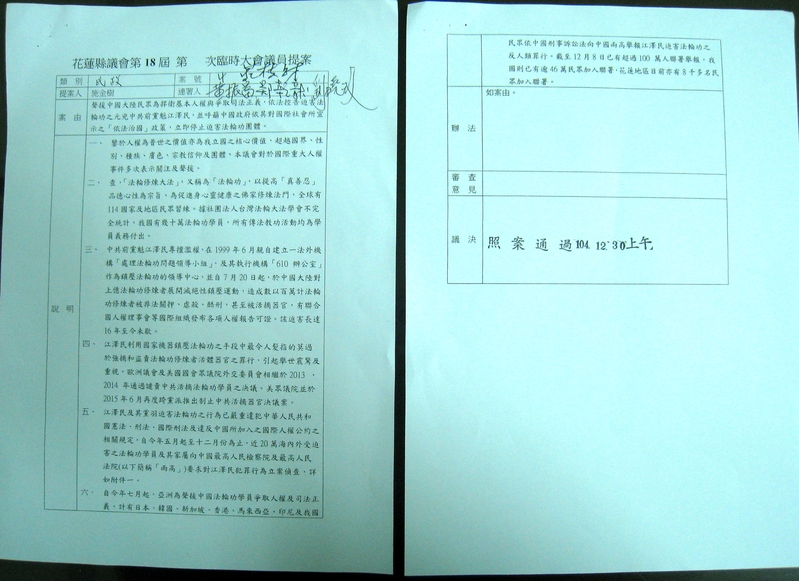 花蓮縣議會第18屆 第 次臨時大會議員提案
類別 民政 案號
提案人 施金樹 連署人
案由
聲援中國大陸民眾為捍衛基本人權與爭取司法正義，依法控告迫害法
輪功之元兇中共前黨魁江澤民，並呼籲中國政府依其對國際社會所宣
示之「依法治國」政策，立即停止迫害法輪功團體。
說明
一、 鑒於人權為普世之價值亦為我立國之核心價值，超越國界、性
別、種族、膚色、宗教信仰及團體。本議會對於國際重大人權
事件多次表示關注及聲援。
二、 查，「法輪修煉大法」，又稱為「法輪功」，以提高「真善忍」
品德心性為宗旨，為促進身心靈健康之佛家修煉法門，全球有
114 國家及地區民眾習練。據社團法人台灣法輪大法學會不完
全統計，我國有幾十萬法輪功學員，所有傳法教功活動均為學
員義務付出。
三、 中共前黨魁江澤民專擅濫權，在 1999 年 6 月親自建立一法外機
構「處理法輪功問題領導小組」，及其執行機構「610 辦公室」
作為鎮壓法輪功的領導中心，並自 7 月 20 日起，於中國大陸對
上億法輪功修煉者展開滅絕性鎮壓運動，造成數以百萬計法輪
功修煉者被非法關押、虐殺、酷刑，甚至被活摘器官，有聯合
國人權理事會等國際組織發布各項人權報告可證。該迫害長達
16 年至今未歇。
四、 江澤民利用國家機器鎮壓法輪功之手段中最令人髮指的莫過
於強摘和盜賣法輪功修煉者活體器官之罪行，引起舉世震驚及
重視。歐洲議會及美國國會眾議院外交委員會相繼於 2013 、
2014 年通過譴責中共活摘法輪功學員之決議、美眾議院並於
2015 年 6 月再度跨黨派推出制止中共活摘器官決議案。
五、 江澤民及其黨羽迫害法輪功之行為已嚴重違犯中華人民共和
國憲法、刑法、國際刑法及違反中國所加入之國際人權公約之
相關規定，自今年五月起至十二月份為止，近 20 萬海內外受迫
害之法輪功學員及其家屬向中國最高人民檢察院及最高人民
法院(以下簡稱「兩高」)要求對江澤民犯罪行為立案偵查。詳
如附件一。
六、 自今年七月起，亞洲為聲援中國法輪功學員爭取人權及司法正
義，計有日本、韓國、新加坡、香港、馬來西亞、印尼及我國
民眾依中國刑事訴訟法向中國兩高舉報江澤民迫害法輪功之
反人類罪行。截至 12 月 8 日已有超過 100 萬人聯署舉報，我
國則已有逾 46 萬民眾加入聯署，花蓮地區目前亦有 8 千多名民
眾加入聯署。
辦法 如案由。
審查
意見
議決 照案通過 104.12.30上午